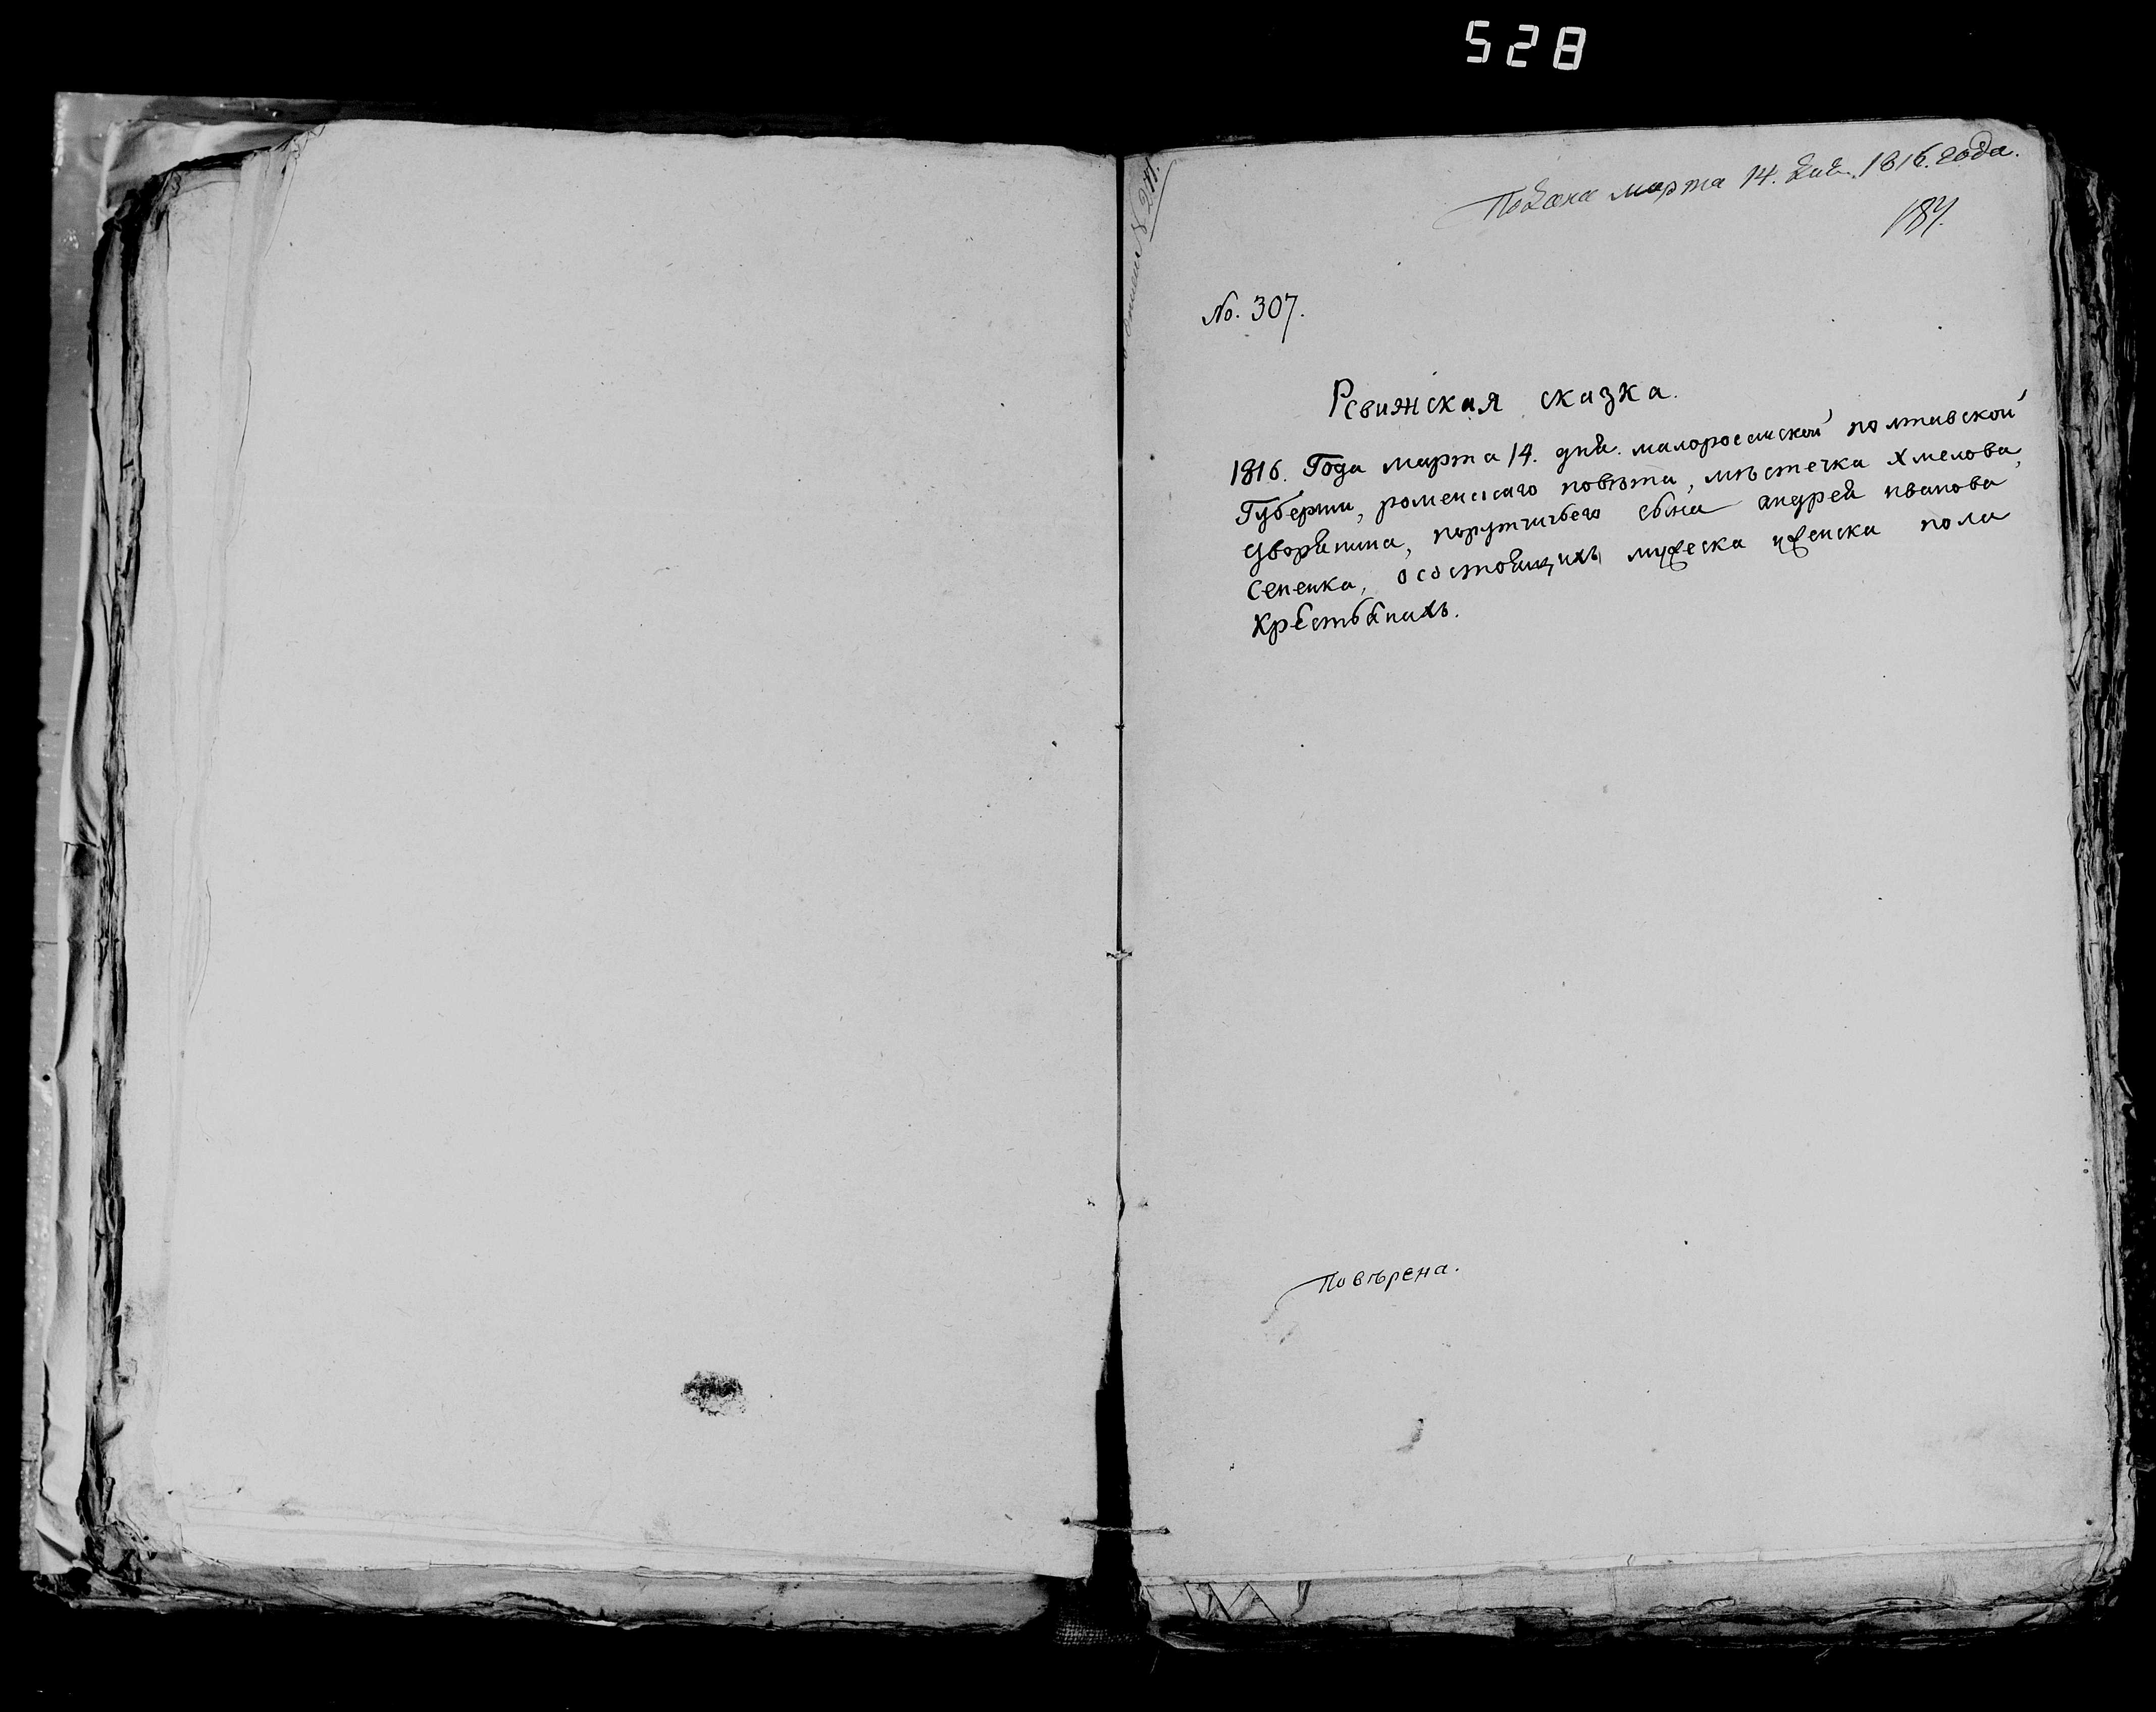 528
Подана марта 14. дня. 1816. года.
184.
No. 307.
Ревижская сказка.
1816. Года марта 14. дня. малоросийской полтавской
Губерни, роменскаго повѣта, мѣстечка Хмелова,
дворянина, порутчичьего сына андрея иванова
Сененка, осостоящихъ мужеска иженска пола
Крестьянахъ.
Повѣрена.